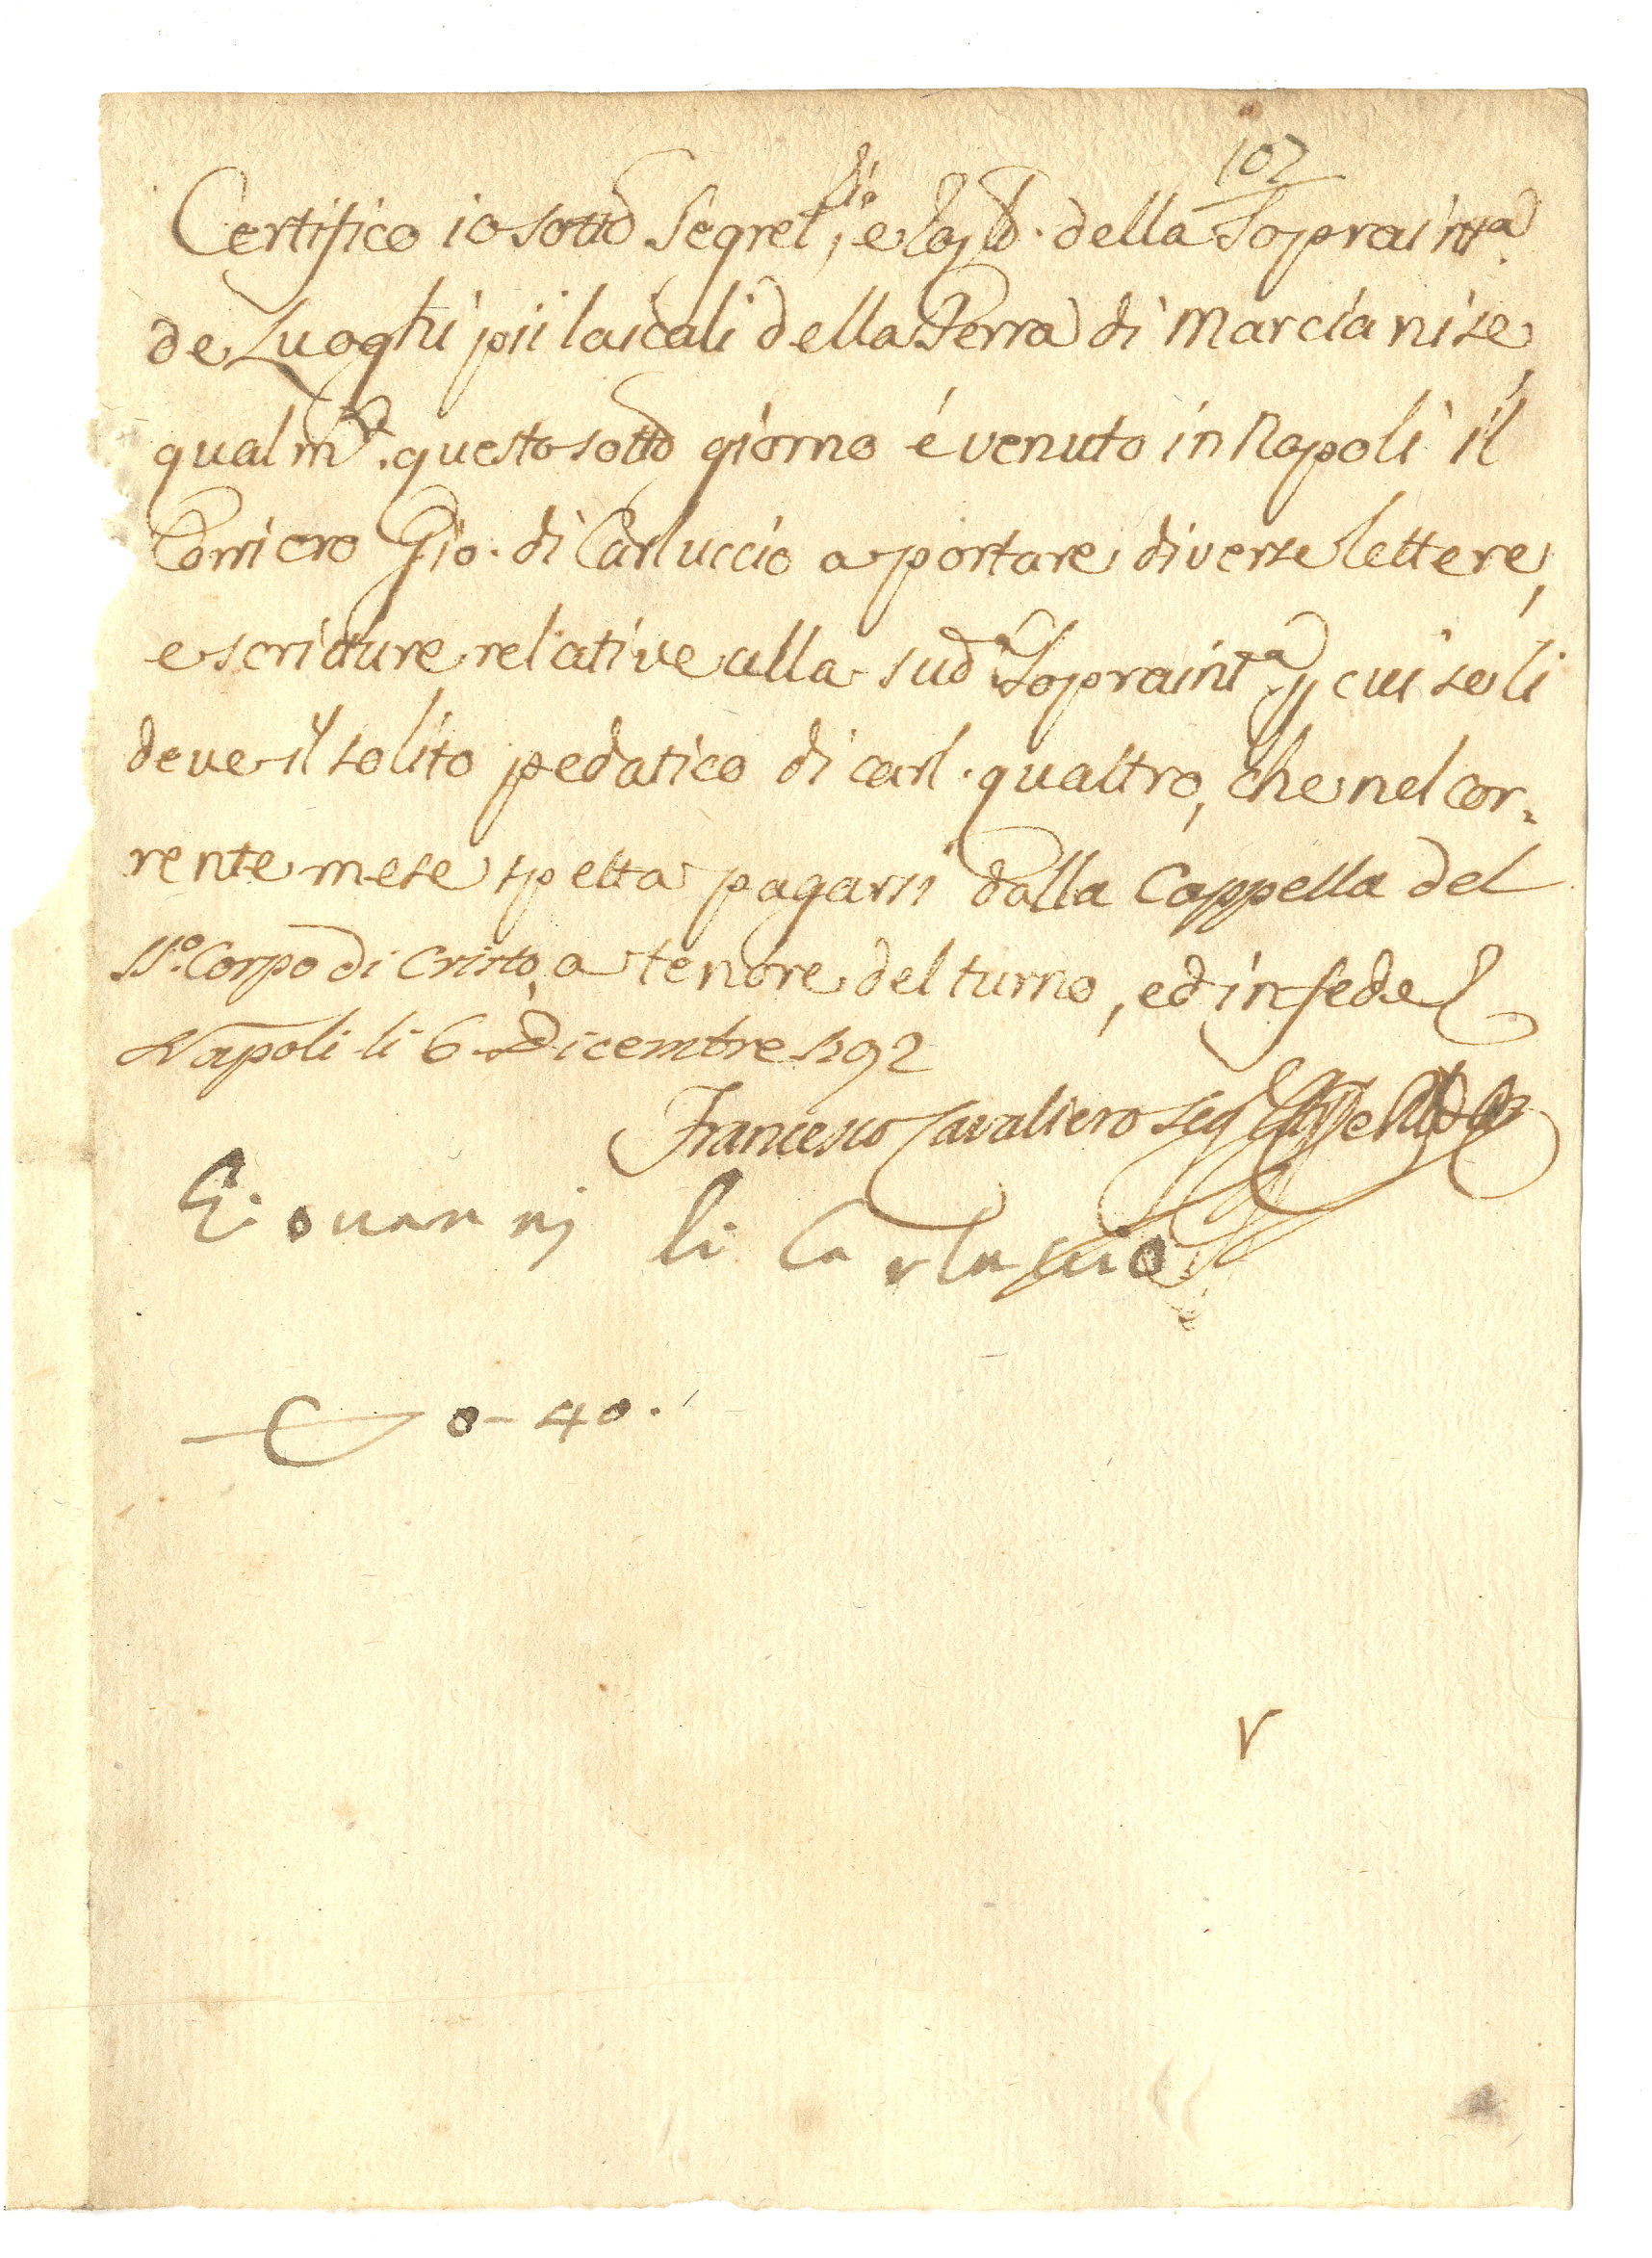 107
Certifico io sotto Segret.rio, e della Sopraint.a
de Luoghi pii laicali della Terra di Marcianise,
qualm.te questo sotto giorno é venuto in Napoli il
Corriero Gio. di Carluccio a portare diverse lettere,
e scritture relative alla sud.a Sopraint.a, p cui se li
deve il solito pedatico di carl. quattro, che nel cor=
rente mese spetta pagarsi dalla Cappella del
SS.o Corpo di Cristo, a tenore del turno, ed in fede
Napoli li 6 Dicembre 1792
Francesco Cavaliero Seg
Giovanni di Carluccio
0-40.